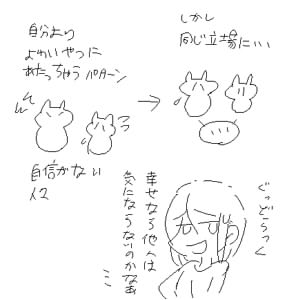 自分より
よわいやつに
あたっちゃうパターン
しかし
同じ立場に…
自信がない
人2
ぐっどらっく
幸せなら他人は
気にならないのかなぁ
…